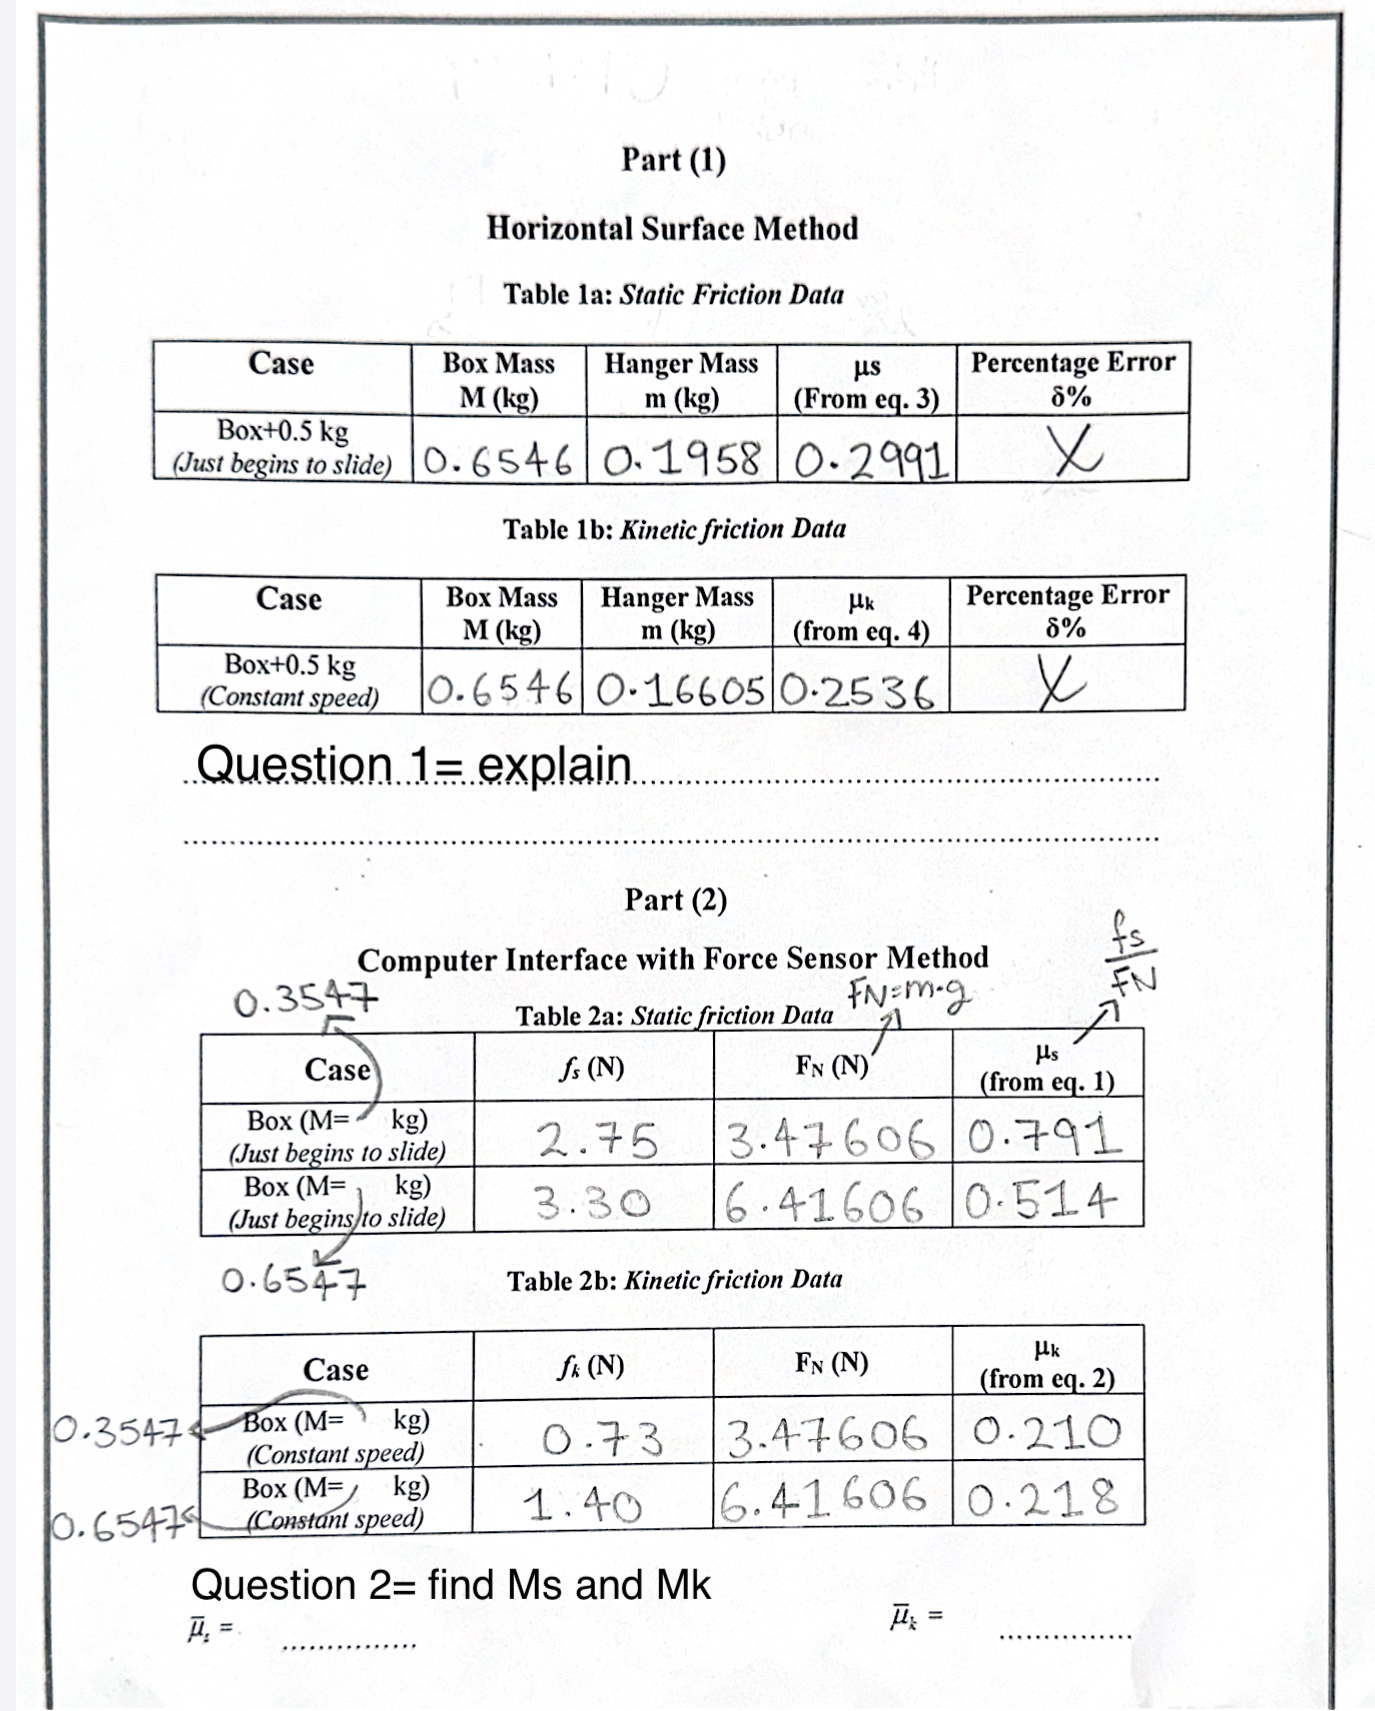 Part (1)
Horizontal Surface Method
Table 1a: Static Friction Data
Case Box Mass M (kg) Hanger Mass m (kg) μs (From eq. 3) Percentage Error δ%
Box+0.5 kg (Just begins to slide) 0.6546 0.1958 0.2991 X
Table 1b: Kinetic friction Data
Case Box Mass M (kg) Hanger Mass m (kg) μk (from eq. 4) Percentage Error δ%
Box+0.5 kg (Constant speed) 0.6546 0.16605 0.2536 X
Question 1= explain
Part (2)
Computer Interface with Force Sensor Method
fs/FN
0.3547
Table 2a: Static friction Data
FN=m·g
Case fs (N) FN (N) μs (from eq. 1)
Box (M= kg) (Just begins to slide) 2.75 3.47606 0.791
Box (M= kg) (Just begins to slide) 3.30 6.41606 0.514
0.6547
Table 2b: Kinetic friction Data
Case fk (N) FN (N) μk (from eq. 2)
0.3547 Box (M= kg) (Constant speed) 0.73 3.47606 0.210
0.6547 Box (M= kg) (Constant speed) 1.40 6.41606 0.218
Question 2= find Ms and Mk
μ̅s = ............... μ̅k = ...............